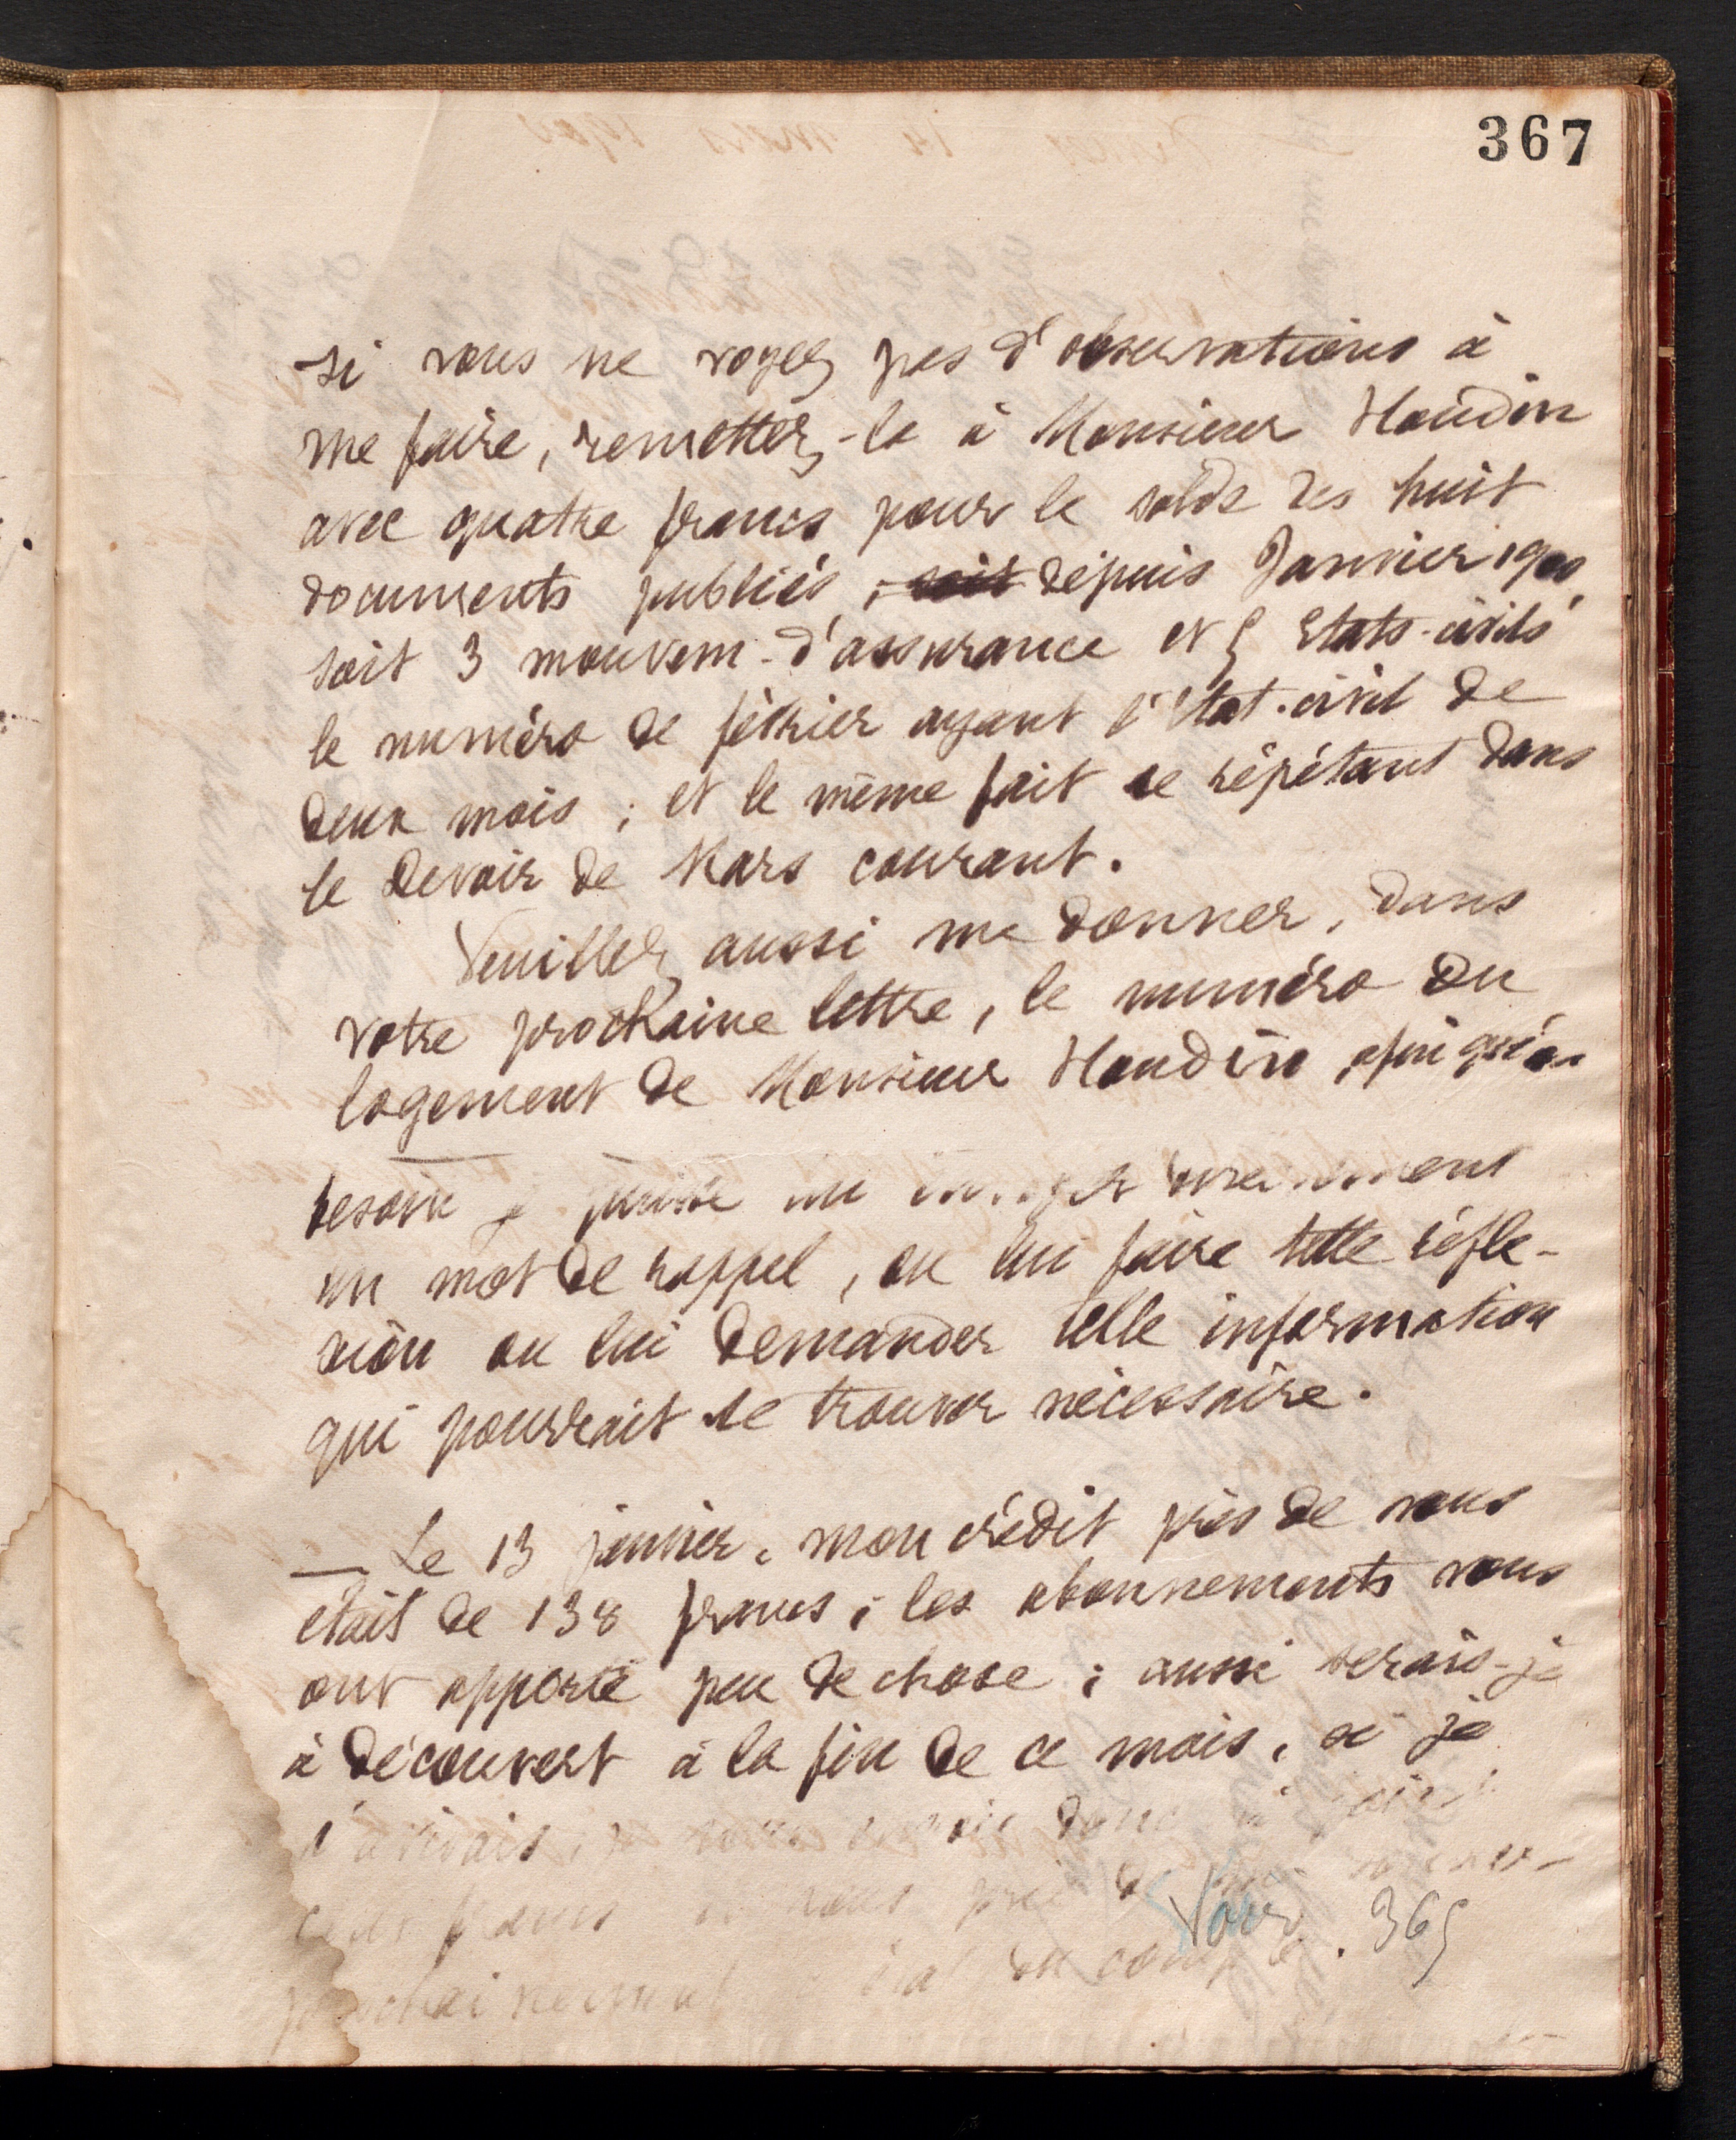 367
si vous ne voyez pas d'observations à
me faire, remettez-la à Monsieur Houdin
avec quatre francs pour le solde des huit
documents publiés, soit depuis Janvier 1900,
soit 3 mouvem. d'assurance et 5 Etats-civils
le numéro de février ayant l'Etat-civil de
deux mois ; et le même fait se répétant dans
le Devoir de Mars courant.
Veuillez aussi me donner, dans
votre prochaine lettre, le numéro du
logement de Monsieur Houdin, afin qu'au
besoin je puisse lui
un mot de rappel, ou lui faire telle réfle-
xion ou lui demander telle information
qui pourrait se trouver nécessaire.
— Le 13 janvier, mon crédit près de vous
était de 138 francs ; les abonnements vous
ont apporté peu de chose ; aussi serais-je
à découvert à la fin de ce mois, si je
n'avisais, je vous envoie donc
cents francs et vous prie de
prochainement du compte.
Voir 365